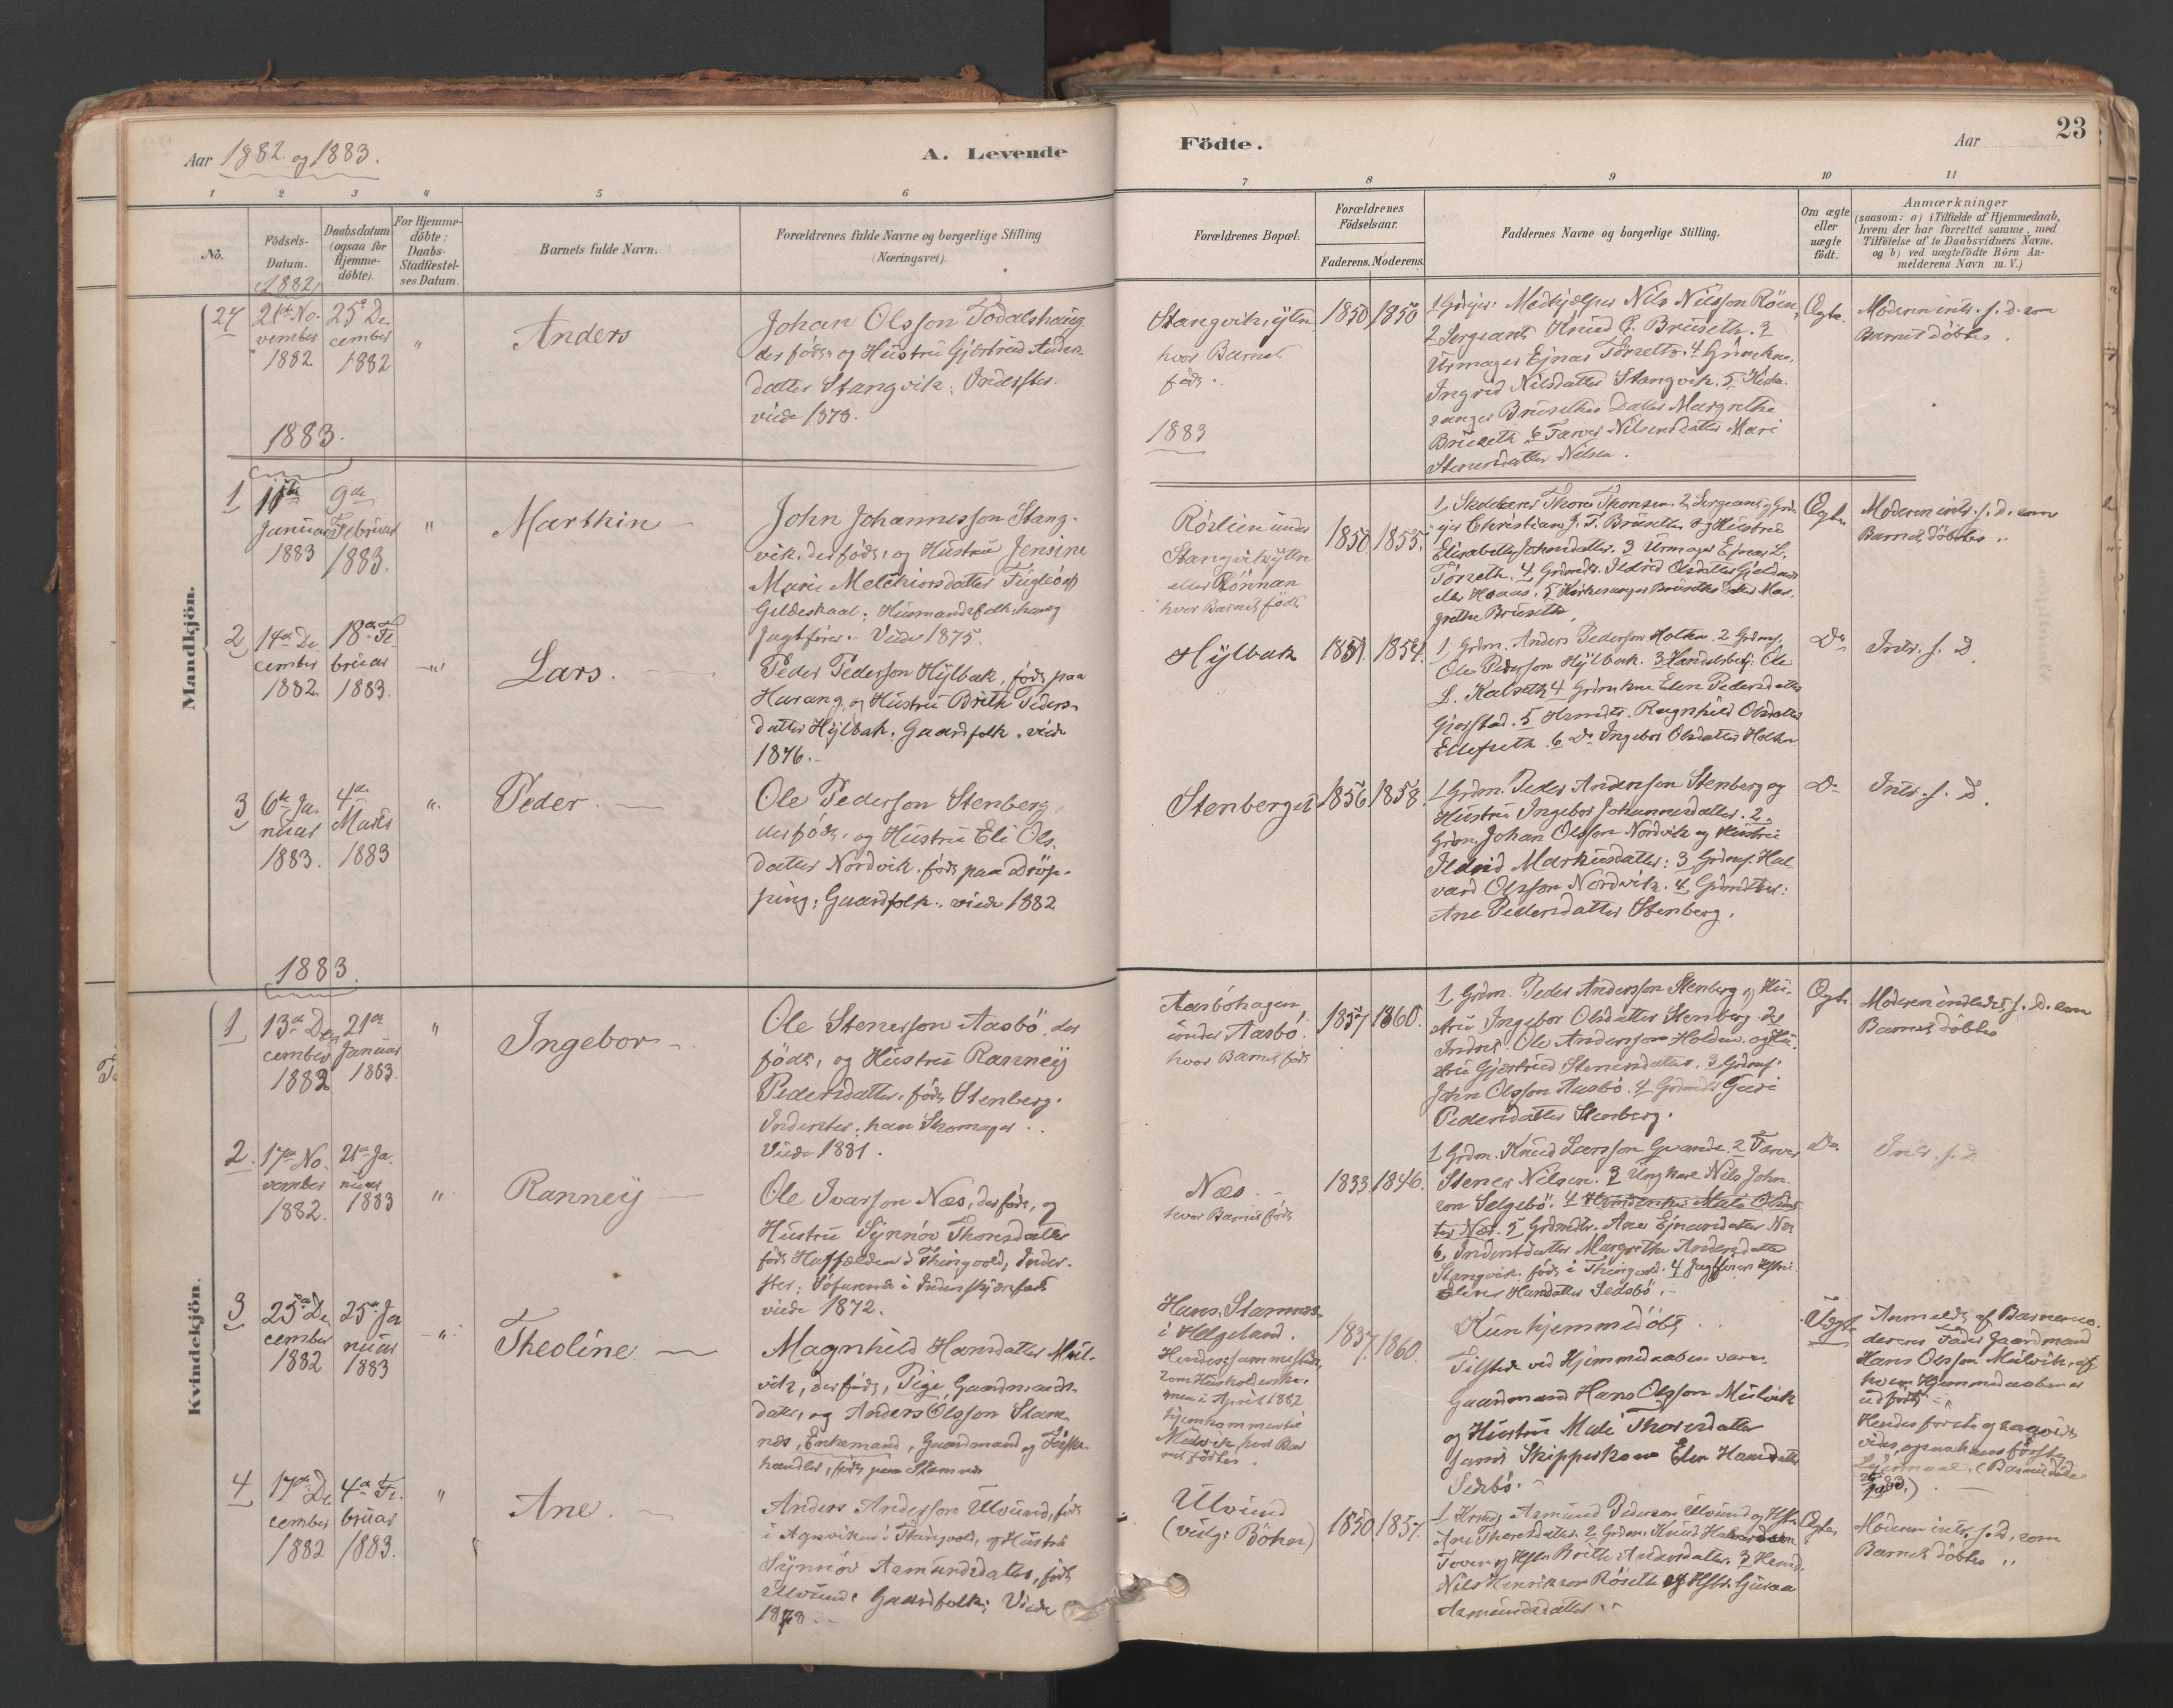 Aar 1882 og 1883.
A. Levende
Födte.
Aar
23
1 2 3 4 5 6 7 8 9 10 11
No.
Födsels-
Datum.
1882
Daabsdatum
(ogsaa for
Hjemme-
döbte).
For Hjemme-
döbte:
Daabs-
Stadfæstel-
ses Datum.
Barnets fulde Navn.
Forældrenes fulde Navne og borgerlige Stilling
(Næringsvei).
Forældrenes Bopæl.
Forældrenes
Födselsaar.
Faderens. Moderens.
Faddernes Navne og borgerlige Stilling.
Om ægte
eller
uægte
födt.
Anmærkninger
(saasom: a) i Tilfælde af Hjemmedaab,
hvem der har forrettet samme, med
Tilföielse af to Daabsvidners Navne.
og b) ved uægtefödte Börn An-
melderens Navn m. V.)
Mandkjön.
27
21de No-
vember
1882
25de De
cember
1882
"
Anders
Johan Olsson Todalshaug
der föd, og Hustru Gjertrud Anders-
datter Stangvik. Inderster.
viede 1878.
Stangvik, ytre
hvor Barnet
föd.
1850 1850
Nils Nilsson Röen,
2 Sergeant Knud G. Bruseth. 3
Urmager Ejnar Törseth. 4
Ingrid Nilsdatter Stangvik. 5 Kirke-
sanger Bruseths Datter Margrethe
Bruseth 6 Farver Nilsens Datter Mari
Stenersdatter Nilsen.
Ægte.
Moderen intr. s. D. som
Barnet döbtes.
1883.
1883
1
11te
Januar
1883
9de
Februar
1883.
"
Marthin
John Johannesson Stang-
vik, der föd, og Hustru Jensine
Marie Melchiorsdatter
Gildeskaal: Husmandsfolk, han
Jagtförer. Viede 1875.
Rörlien under
Stangvik ytre
eller Rönnan
hvor Barnet föd
1850 1855.
1 Skolelærer Thore Thoresen. 2 Sergeant, Grd-
ejer Christian J. T. Bruseth og Hustru
Elisabeth Johnsdatter. 3 Urmager Ejnar L.
Törseth. 4 Grdmdtr. Ildrid Olsdatter
eller Haaas. 5 Kirkesanger Bruseths Datter Mar-
grethe Bruseth.
Ægte
Moderen intr. s. D. som
Barnet döbtes "
2
14de De
cember
1882
18de Fe
bruar
1883.
"
Lars.
Peder Pederson Hylbak, föd paa
Harang, og Hustru Brith Peders-
datter Hylbak. Gaardfolk. viede
1876.
Hylbak
1851. 1854.
1 Grdm. Anders Pederson Holten. 2 Grdms.
Ole Pederson Hylbak. 3 Handelsbetj. Ole
L. Kalseth 4 Grdmkne Elen Pedersdatter
Gjerstad. 5 Ragnhild Olsdatter
Ellefseth. 6 Do Ingebor Olsdatter Holten
Do
Intr. s. D.
3
6te Ja-
nuar
1883.
4de
Marts
1883
"
Peder.
Ole Pederson Stenberg
der föd, og Hustru Eli Ols-
datter Nordvik. föd paa Dröp-
ping; Gaardfolk, viede 1882
Stenberget
1856 1858.
1 Grdm. Peder Andersson Stenberg og
Hustru Ingebor Johannesdatter. 2
Grdm. Johan Olsson Nordvik og Hustru
Ildrid Markusdatter: 3 Grdms. Hal
vard Olsson Nordvik. 4 Grdmdtr.
Ane Pedersdatter Stenberg.
Do
Intr. s. D.
Kvindekjön.
1883.
1
13de De
cember
1882
21de
Januar
1883.
"
Ingebor
Ole Stenerson Aasbö. der
födt, og Hustru Ranney
Pedersdatter, föd Stenberg.
Inderster. han Skomager.
Viede 1881.
Aasböhagen
under Aasbö.
hvor Barnet föd
1857 1860.
1 Grdm. Peder Andersson Stenberg og Hu-
stru Ingebor Olsdatter Stenberg. 2
Inderst. Ole Andersson Holden og Hu-
stru Gjertrud Stenersdatter. 3 Grdms.
John Olsson Aasbö. 4 Grdmdtr Guri
Pedersdatter Stenberg.
Ægte.
Moderen indledet s. D. som
Barnet döbtes
2.
17de No-
vember
1882.
21de Ja-
nuar
1883
"
Ranney
Ole Ivarson Næs, der föd, og
Hustru Synnöv Thoresdatter
föd i Thingvold, Inder-
ster;
viede 1872.
Næs
hvor Barnet föd
1833. 1846.
1 Grdm. Knud Larsson Qvande. 2 Farver
Stener Nilsen. 3 Ungkarl Nils John-
son Selgebö. 4
5 Grdmdtr. Ane Ejnarsdatter Næs
6 Inderstdatter Margrethe Andersdatter
Stangvik. föd i Thingvold. 4 Jagtförer
Elen Hansdatter Sedsbö.
Do
Intr. s. D
3
25de De
cember
1882
25de Ja
nuar
1883
"
Theoline
Magnhild Hansdatter Mul-
vik, der föd, Pige, Gaardmands-
datter, og Anders Olsson Stam-
nes, Enkemand, Gaardmand og Fiske-
handler, föd paa Stamnes
Hans Stamnes
i Helgeland.
Hendes sammesteds
som Husholderske,
men i April 1882
hjemkommen til
Mulvik hvor Bar
net födtes.
1837. 1860.
Kun hjemmedöbt.
Tilstede ved Hjemmedaaben vare:
Gaardmand Hans Olsson Mulvik
og Hustru Mali Thoresdatter
samt Skipperkone Elen Hansdatter
Sedsbö.
Uægte
Anmeldt af Barnemo-
derens Fader Gaardmand
Hans Olsson Mulvik, af
hvem Hjemmedaaben er
udfört.
Hendes förste og saavidt
vides ogsaa hans förste
Leiermaal. (Barnet döde
4
17de De
cember
1882
4de Fe-
bruar
1883.
"
Ane.
Anders Andersson Ulvund, föd
i Agnviken i Thingvold, og Hustru
Synnöv Asmundsdatter, föd
Ulvund. Gaardfolk; Viede
1878.
Ulvund
(vulg: Böhen)
1850. 1857.
1 Asmund Pederson Ulvund og Hstr.
Ane Thoresdatter. 2 Grdm. Knud
Toven og Hstr. Brith Andersdatter. 3
Nils Henrikson Röseth og Hstr. Guraa
Asmundsdatter
Ægte
Moderen intr. s. D. som
Barnet döbtes "